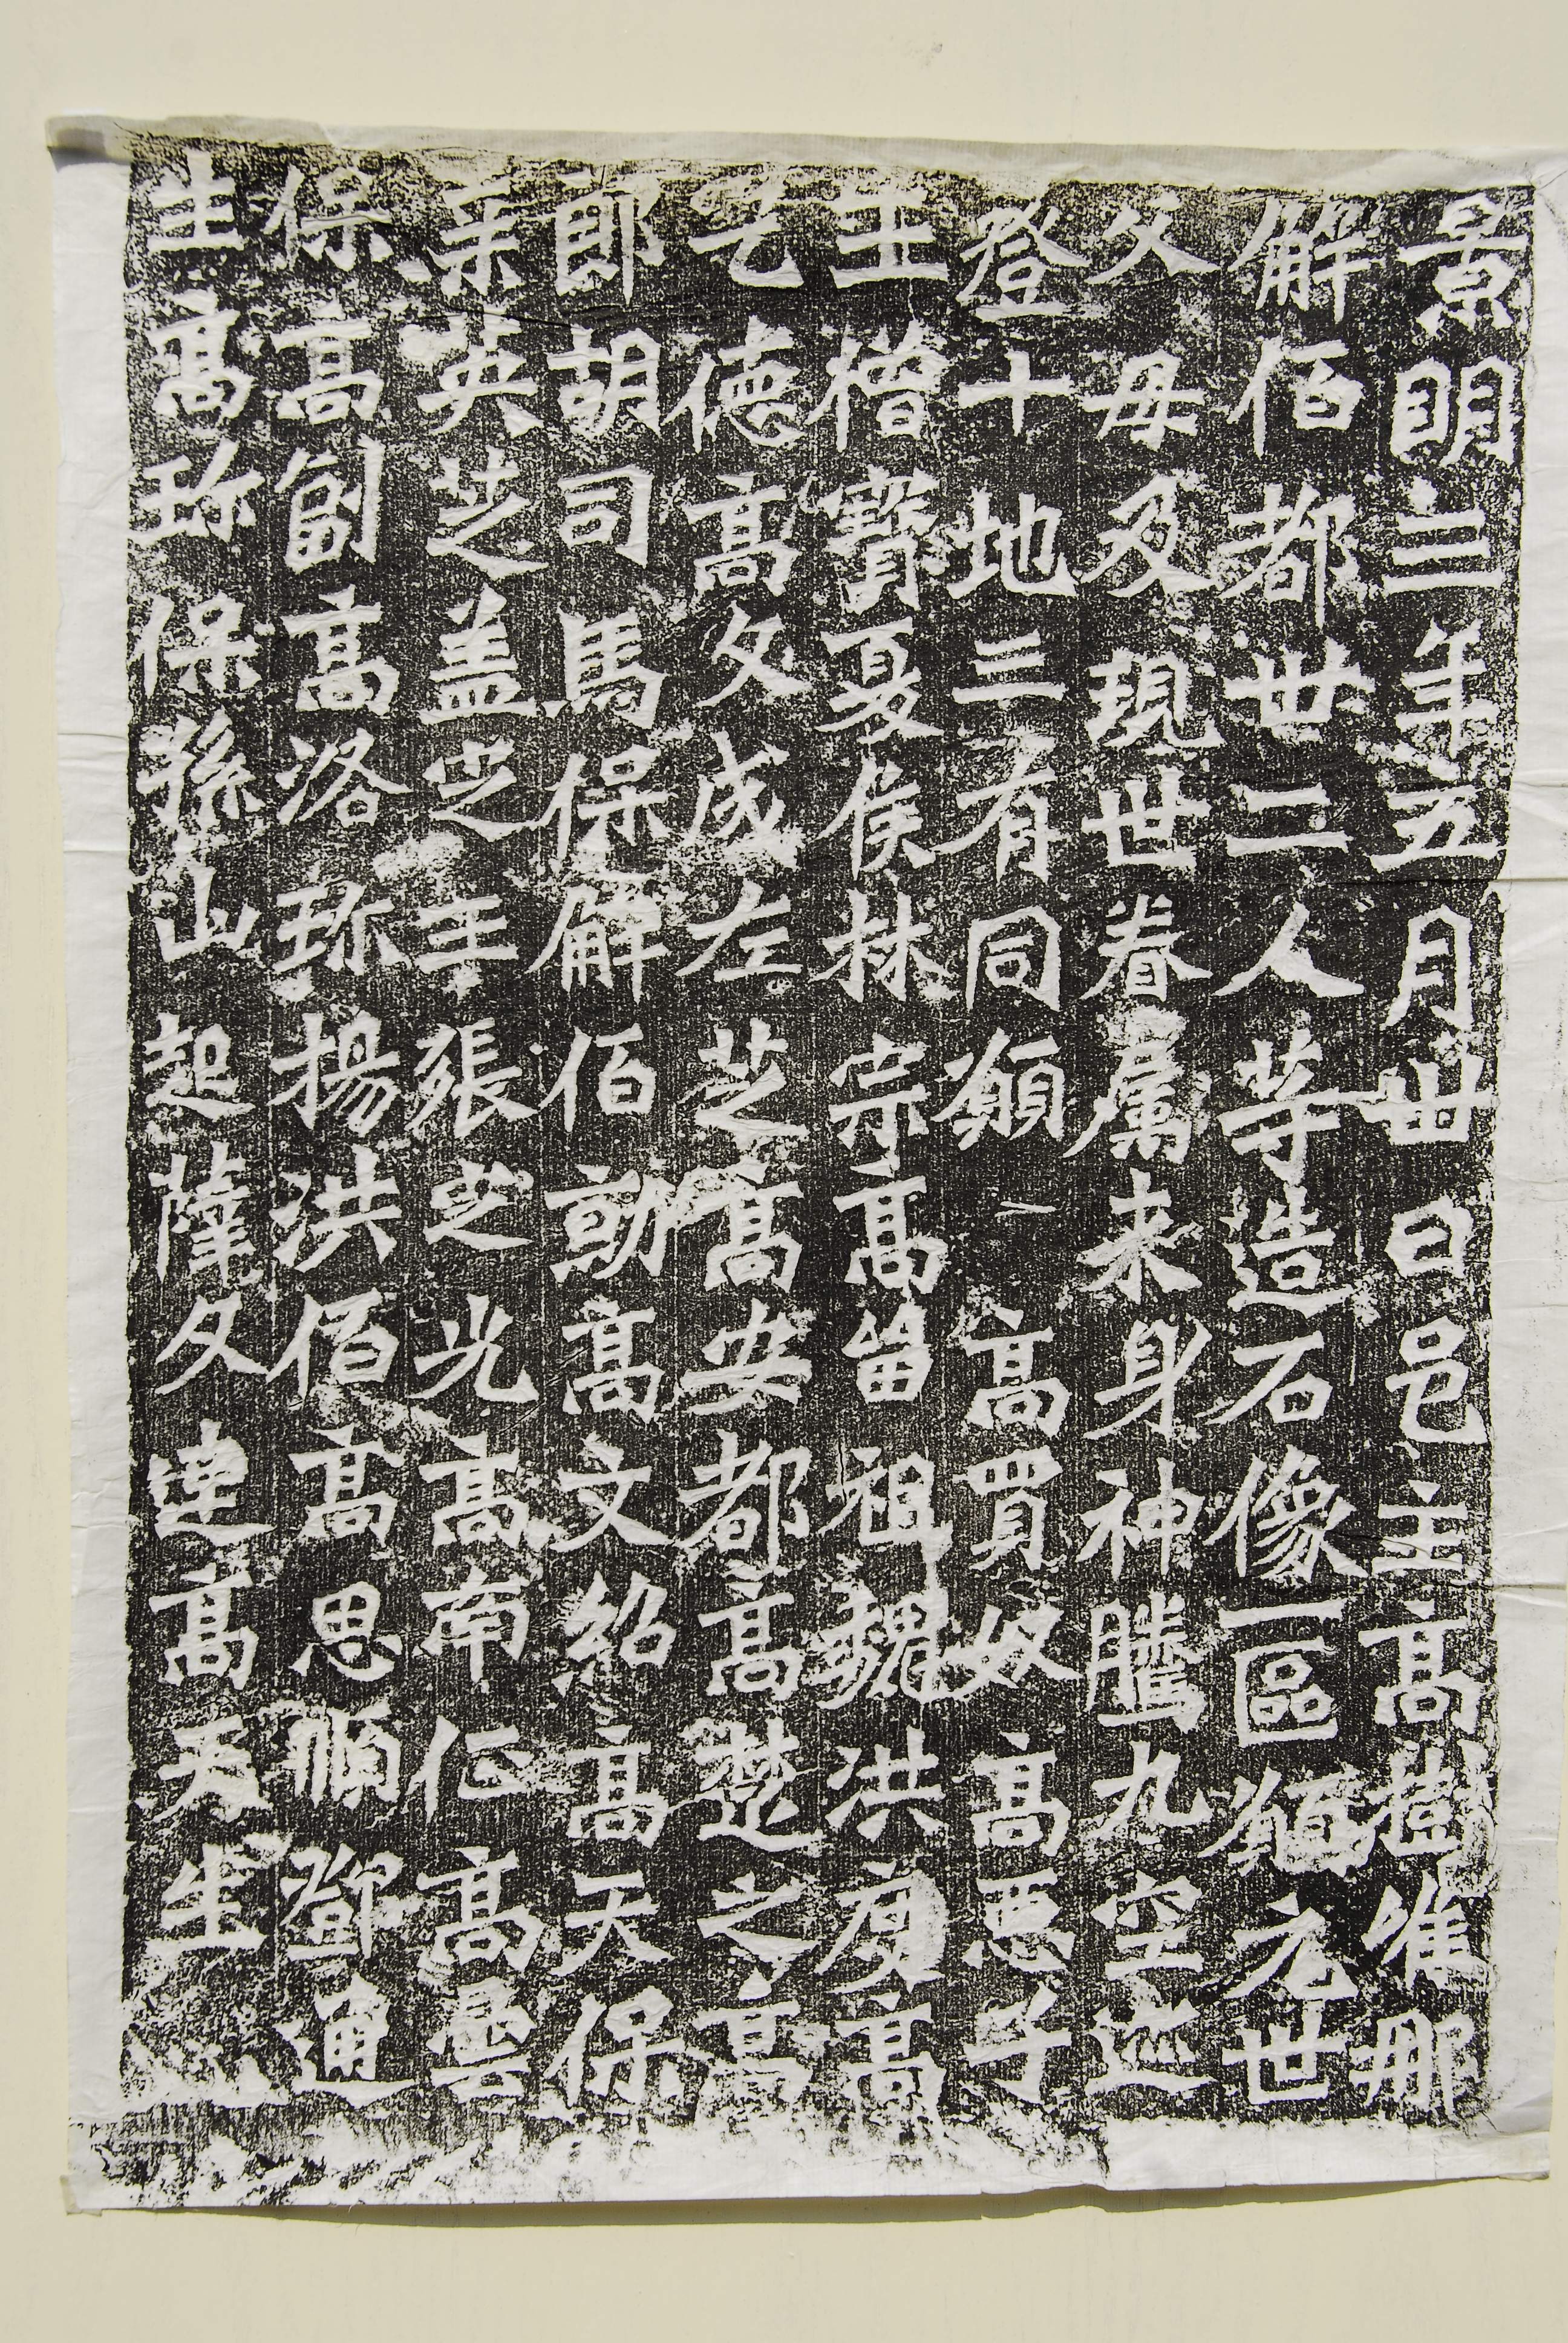 景明三年五月卅日邑主高樹惟那
解佰都卅二人等造石像一區願元世
父母及現世眷屬来身神騰九空迹
登十地三有同願一高買奴高惡子
王僧寶夏侯林宗高留祖魏洪度高
乞德高文成左芝高安都高楚之高
郎胡司馬保解佰勍高文紹高天保
英芝蓋定王張定光高南仁高雲
保高副高洛珎楊洪佰高思順鄧通
生高珎保孫山起薩文達高天生